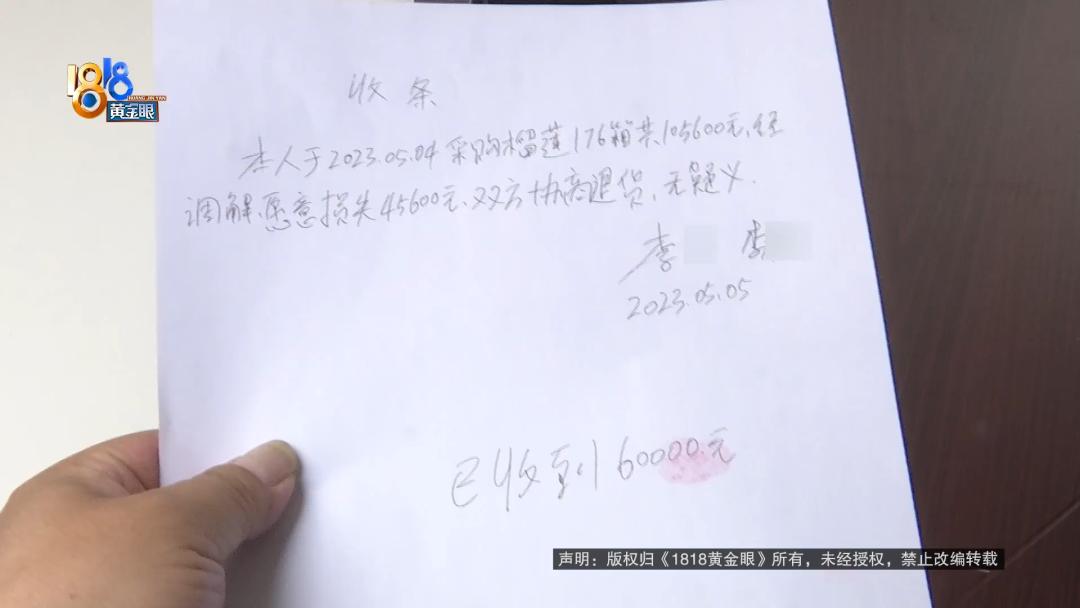 1818
HUANG JIN YAN
黄金眼
收条
本人于2023.05.04采购榴莲176箱共105600元、经
调解愿意损失45600元、双方协商退货、无疑义.
李 李
2023.05.05
已收到60000.元
声明：版权归《1818黄金眼》所有，未经授权，禁止改编转载